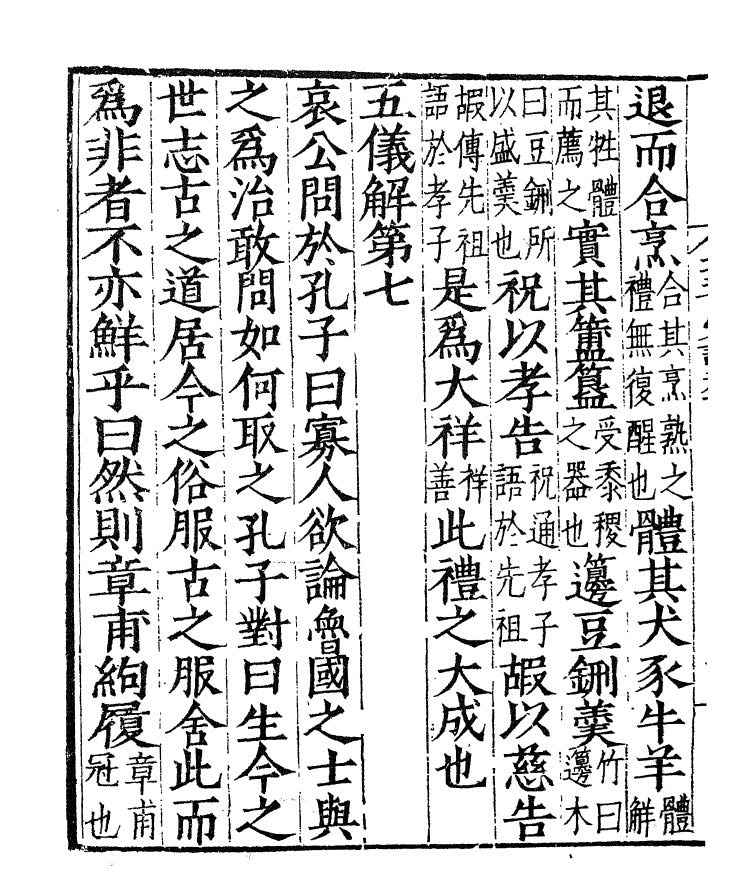 退而合烹合其烹熟之禮無復醒也體其犬豕牛羊體解
其牲體而薦之實其簠簋受黍稷之器也籩豆鉶羹竹曰籩木
曰豆鉶所以盛羹也祝以孝告祝通孝子語於先祖嘏以慈告
嘏傳先祖語於孝子是爲大祥祥善此禮之大成也
五儀解第七
哀公問於孔子曰寡人欲論魯國之士與
之爲治敢問如何取之孔子對曰生今之
世志古之道居今之俗服古之服舍此而
爲非者不亦鮮乎曰然則章甫絇履章甫冠也